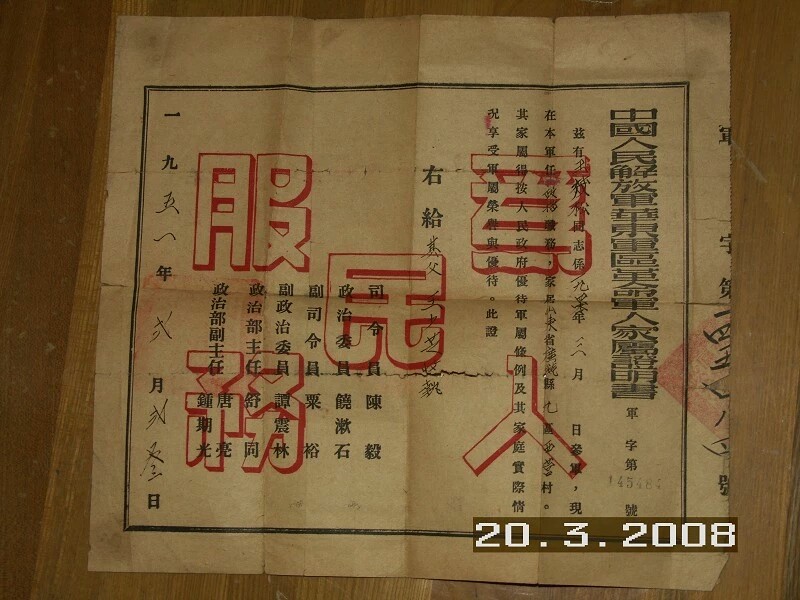 軍 字第 號
中國人民解放軍華東軍區革命軍人家屬證明書
軍字第 號
茲有王 松同志係一九 年三八月 日參軍，現
在本軍任 職務，家居山東省 縣九區 村。
其家屬得按人民政府優待軍屬條例及其家庭實際情
況享受軍屬榮譽與優待。此證
右給
為人民服務
司令員 陳毅
政治委員 饒漱石
副司令員 粟裕
副政治委員 譚震林
政治部主任 舒同
政治部副主任 唐亮 鍾期光
一九五一年 貳月 日
20.3.2008